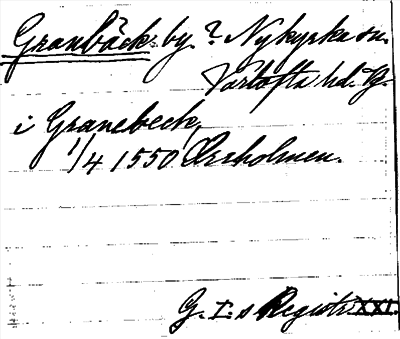 Granbäck. by. ? Nykyrka sn.
Vartofta hd. Vg.
i Granebeck,
1/4 1550 Örsholmen.
G. I:s Registr XXI.